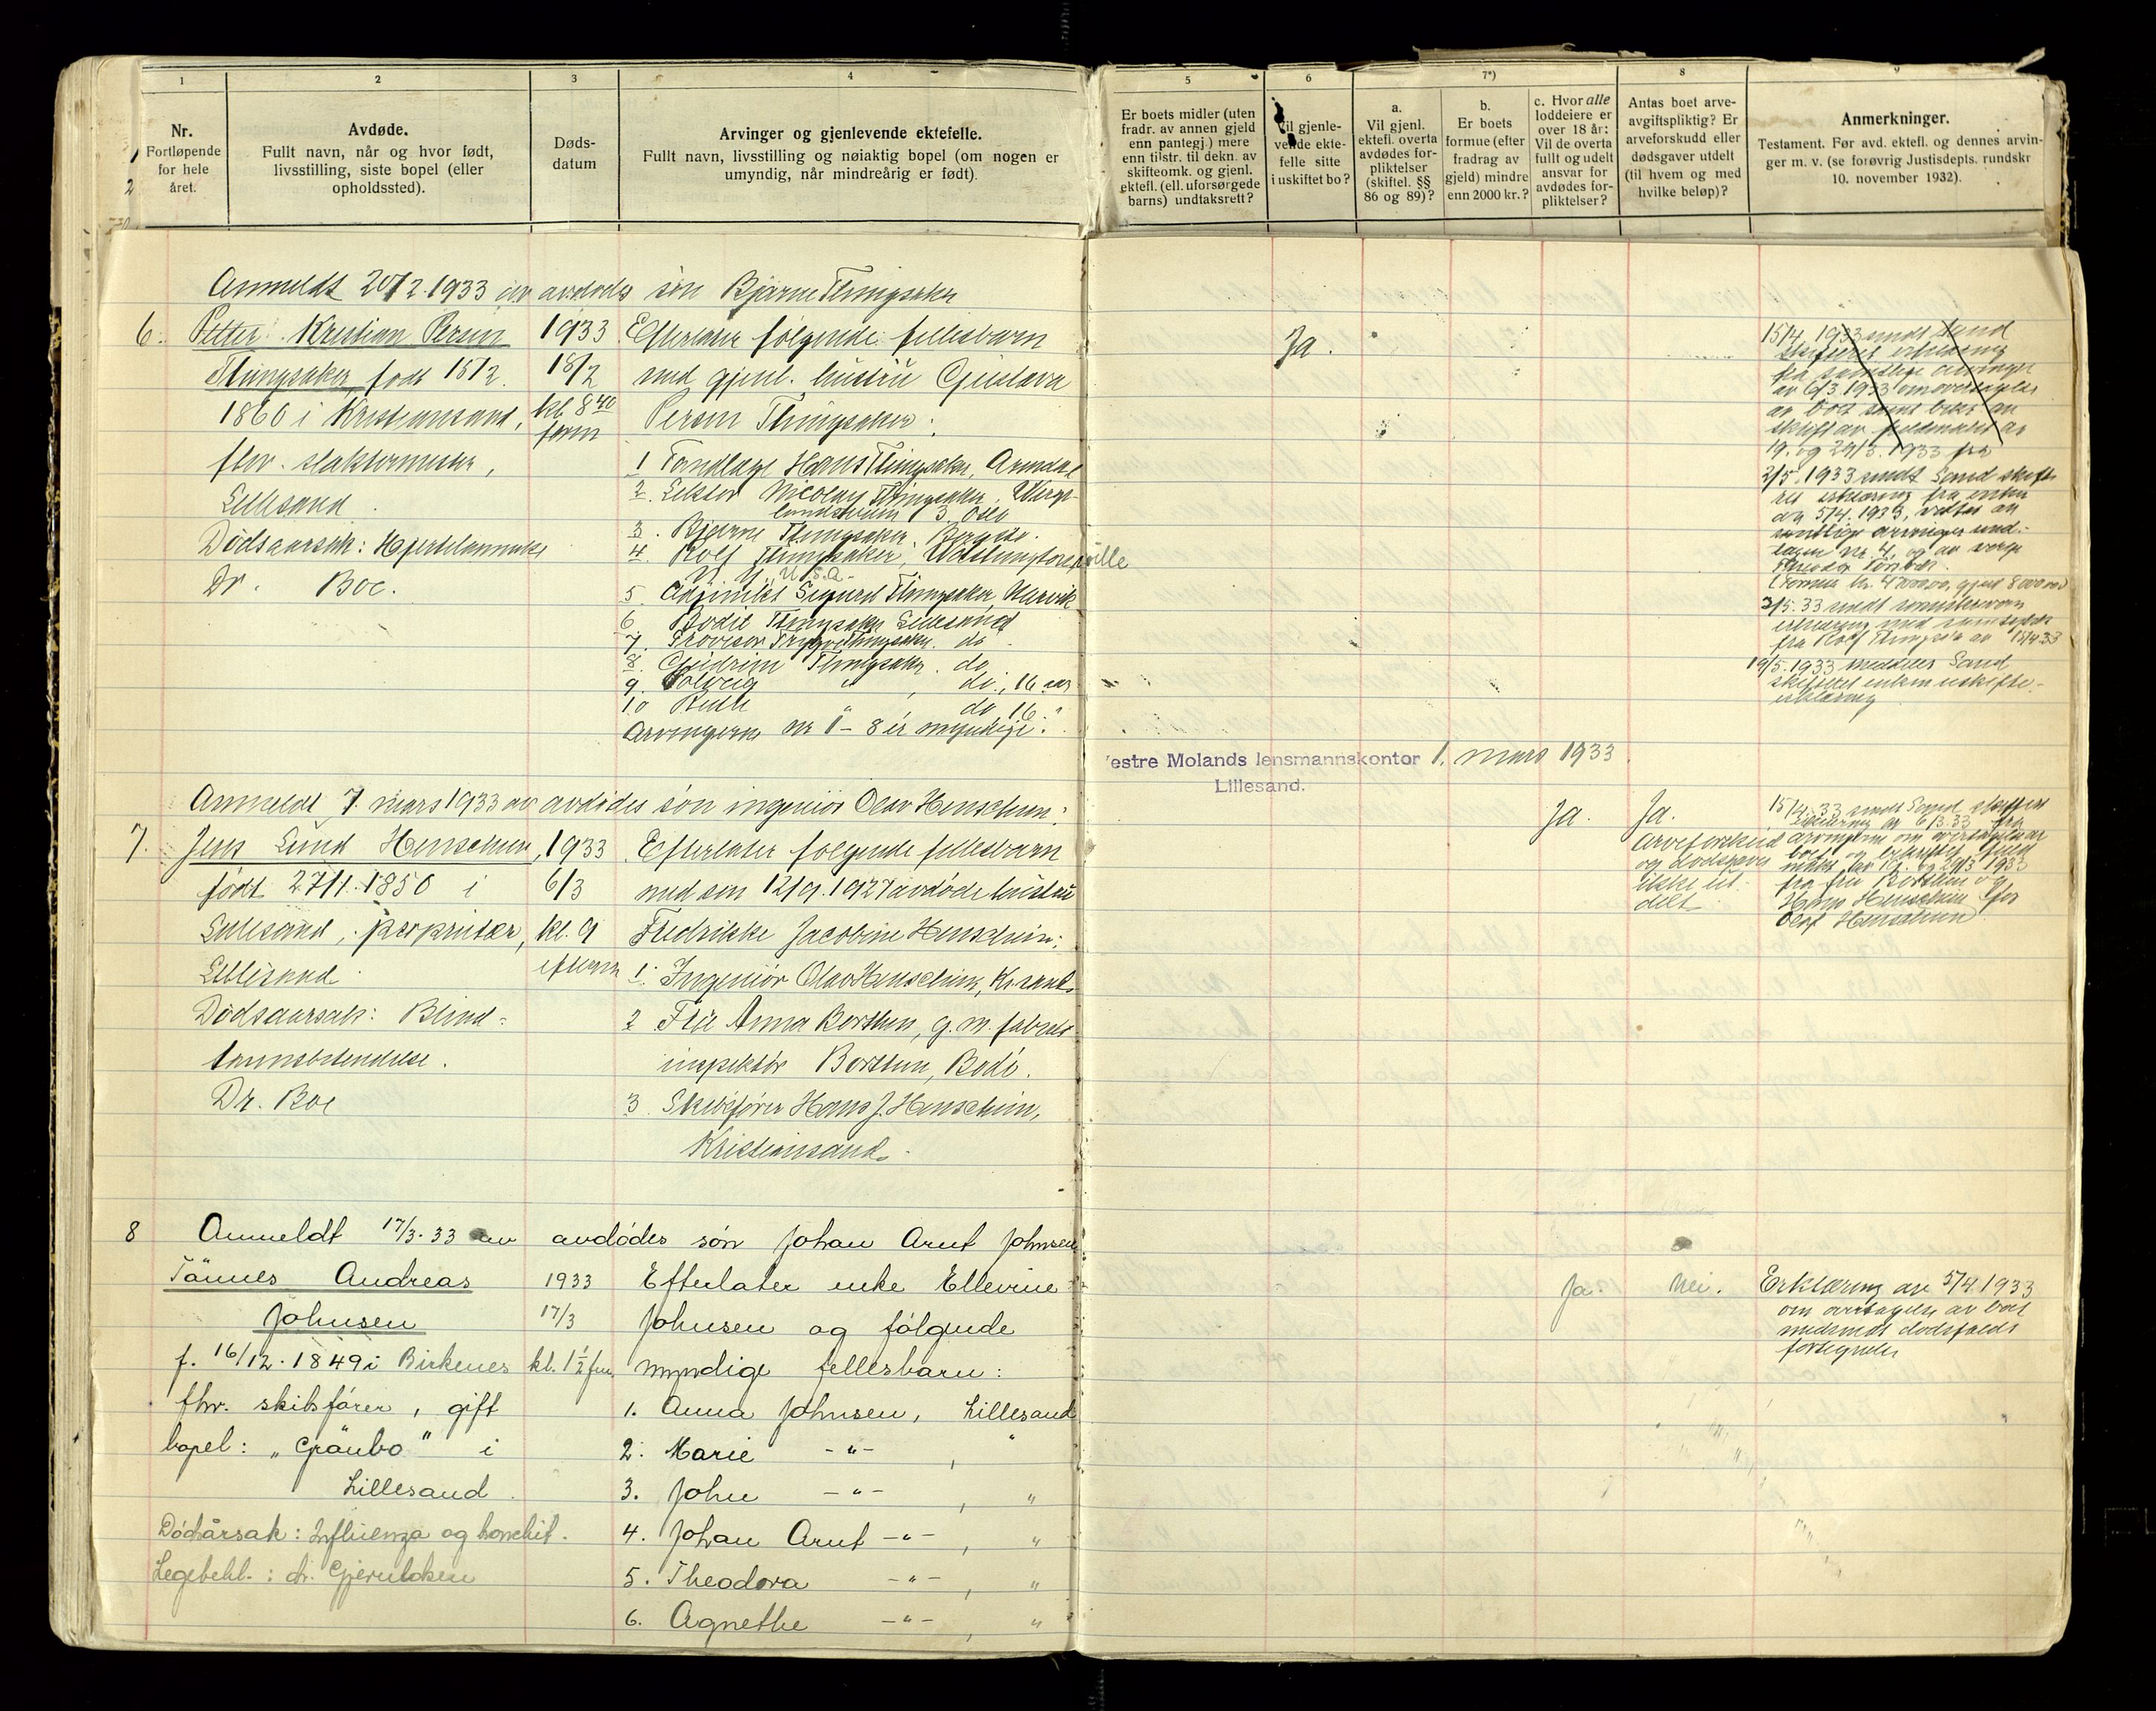 1
Nr.
Fortløpende
for hele
året.
2
Avdøde.
Fullt navn, når og hvor født,
livsstilling, siste bopel (eller
opholdssted).
3
Døds-
datum
4
Arvinger og gjenlevende ektefelle.
Fullt navn, livsstilling og nøiaktig bopel (om nogen er
umyndig, når mindreårig er født).
5
Er boets midler (uten
fradr. av annen gjeld
enn pantegj.) mere
enn tilstr. til dekn. av
skifteomk. og gjenl.
ektefl. (ell. uforsørgede
barns) undtaksrett?
6
Vil gjenle-
vende ekte-
felle sitte
i uskiftet bo?
7*)
a.
Vil gjenl.
ektefl. overta
avdødes for-
pliktelser
(skiftel. §§
86 og 89)?
b.
Er boets
formue (efter
fradrag av
gjeld) mindre
enn 2000 kr.?
c. Hvor alle
loddeiere er
over 18 år:
Vil de overta
fullt og udelt
ansvar for
avdødes for-
pliktelser?
8
Antas boet arve-
avgiftspliktig? Er
arveforskudd eller
dødsgaver utdelt
(til hvem og med
hvilke beløp)?
9
Anmerkninger.
Testament. Før avd. ektefl. og dennes arvin-
ger m. v. (se forøvrig Justisdepts. rundskr
10. november 1932).
Anmeldt 20/2.1933 av avdødes søn Bjarne Thingsaker
6. Petter Kristian Person
Thingsaker, født 15/2.
1860 i Kristiansand,
fhv. slaktermester,
Lillesand.
Dødsaarsak: Hjertelammelse
Dr. Boe.
1933
18/2
kl. 8 40
form
Efterlater følgende fellesbarn
med gjenl. hustru Gustava
Person Thingsaker:
1 Tandlæge Hans Thingsaker, Arendal
2. Lektor Nicolay Thingsaker,
3 Oslo
3. Bjarne Thingsaker
4. Rolf Thingsaker, Washingtonsville
N. Y. U.S.A.
5. Adjunkt Sigurd Thingsaker, Narvik
6. Bodil Thingsaker Lillesand
7. Provisor Trygve Thingsaker. do
8. Gudrun Thingsaker. do
9. Solveig " , do., 16 aar
10 Ruth " do 16. "
Arvingerne nr 1 – 8 er myndige.
Ja.
15/4 1933 sendt Sand
skifteret erklæring
fra samtlige arvinger
av 6/3 1933 om overtagelse
av boet samt
skift av
19. og 29/3. 1933 fra
2/5. 1933 sendt Sand skifte
ret erklæring fra enken
av 5/4. 1933,
samtlige arvinger und-
tagen nr. 4, og av verge
2/5.33 sendt
erklæring med samtykke
fra Rolf Thingsaker av 15/4 33
19/5. 1933 meddeler Sand
skifteret enken uskifte-
erklæring
Vestre Molands lensmannskontor 1. mars 1933.
Lillesand.
Anmeldt 7. mars 1933 av avdødes søn ingeniør Olav Henschien:
7. Jens Lund Henschien,
født 27/1. 1850 i
Lillesand, proprietær,
Lillesand.
Dødsaarsak: Blind-
tarmsbetendelse.
Dr. Boe
1933
6/3
kl. 9
efterm
Efterlater følgende fellesbarn
med sin 12/9. 1927 avdøde hustru
Fredrikke Jacobine Henschien:
1. Ingeniør Olav Henschien, Kr.sand.
2 Fru Anna Borthen, g. m. fabrik-
inspektør Borthen, Bodø.
3. Skibsfører Hans J. Henschien,
Kristiansand.
Ja.
Ja.
Arveforskud
og dødsgaver
ikke ut-
delt
15/4. 33 sendt Sand skifteret
erklæring av 6/3.33 fra
arvingene om overtagelse av
boet
av 19. og 29/3 1933
fra fru Borthen og
Hans Henschien for
Olaf Henschien
8 Anmeldt 17/3. 33 av avdødes søn Johan Arnt Johnsen
Tønnes Andreas
Johnsen
f. 16/12. 1849 i Birkenes
fhv. skibsfører, gift
bopel: „Grånbo" i
Lillesand.
Dødsårsak: Influenza og bronchit.
Legebehl.: dr. Gjeruldsen
1933
17/3
kl. 1½ fm.
Efterlater enke Ellevine
Johnsen og følgende
myndige fellesbarn:
1. Anna Johnsen, Lillesand
2. Marie -"- , "
3. John -"- , "
4. Johan Arnt -"- , "
5. Theodora -"- , "
6. Agnethe -"- , "
Ja.
Nei.
Erklæring av 5/4 1933
om overtagelse av boet
medsendt dødsfalds
fortegnelse